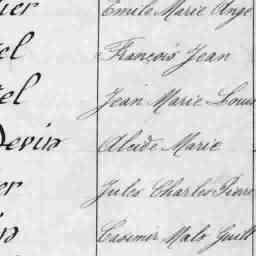 ier Emile Marie Ange
el François Jean
el Jean Marie Louis
Devin Alcide Marie
er Jules Charles Pierre
in Casimir Malo Guill